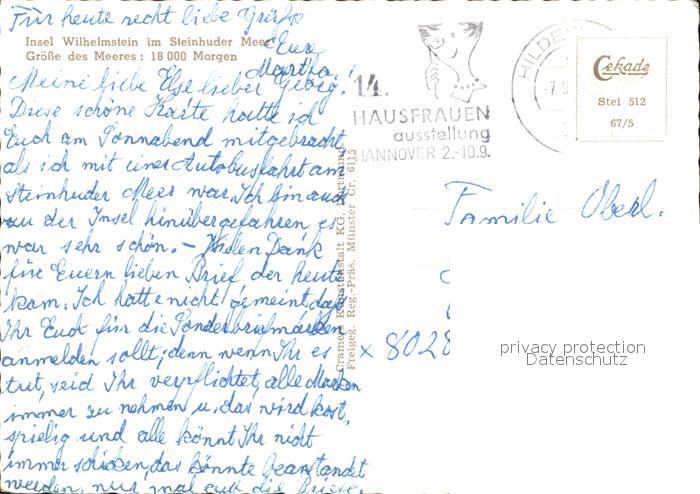 Für heute recht liebe Grüße
Eure
Martha.
Insel Wilhelmstein im Steinhuder Meer
Größe des Meeres: 18 000 Morgen
Meine liebe Else lieber Georg!
Diese schöne Karte hatte ich
Euch am Sonnabend mitgebracht
als ich mit einer Autobusfahrt am
Steinhuder Meer war. Ich bin auch
zu der Insel hinübergefahren es
war sehr schön. – Vielen Dank
für Euern lieben Brief der heute
kam. Ich hatte nicht gemeint daß
Ihr Euch für die Sonderbriefmarken
anmelden sollt, denn wenn Ihr es
tut, seid Ihr verpflichtet, alle Marken
immer zu nehmen u. das wird kost,
spielig und alle könnt Ihr nicht
immer schicken, das könnte beanstandet
werden, nur mal auf die Briefe.
Cramers Kunstanstalt KG, Dortmund
Freigeg. Reg.-Präs. Münster Cr. 6115
14.
HAUSFRAUEN
ausstellung
HANNOVER 2.-10.9.
HILDE
-7.9
Cekade
Stei 512
67/5
Familie Oberl.
x 8028
privacy protection
Datenschutz